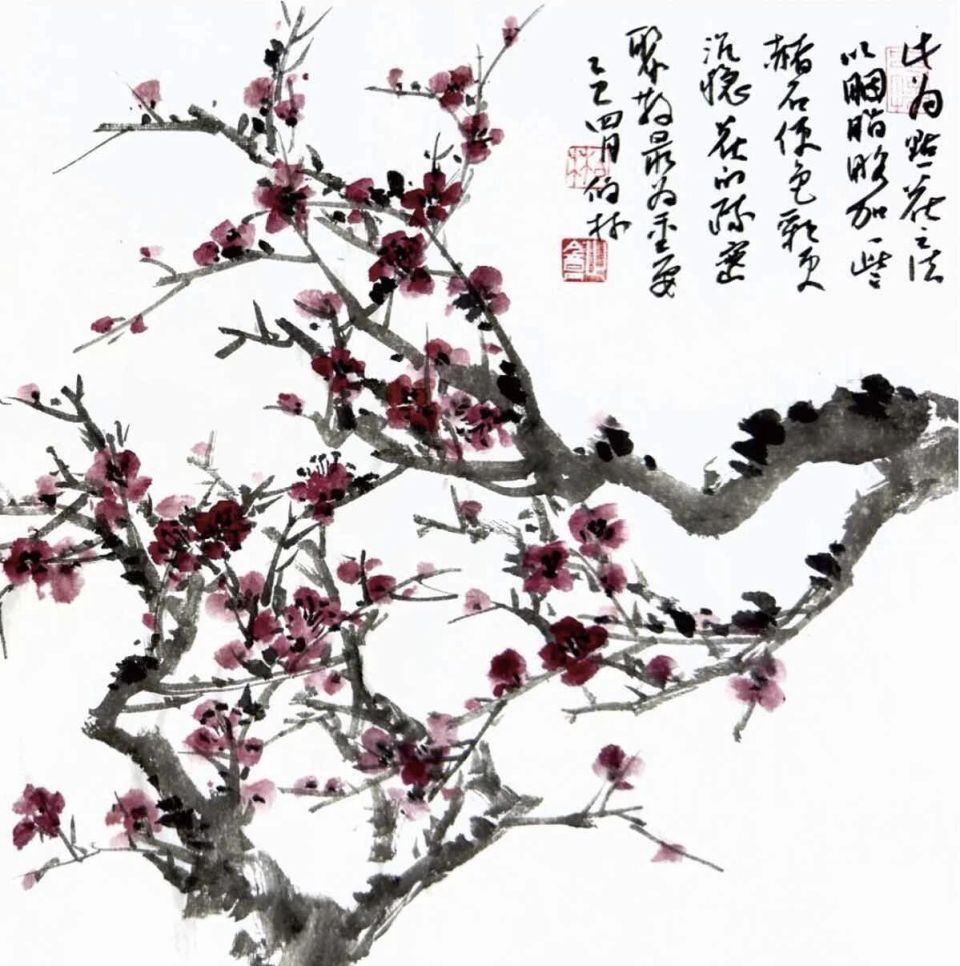 此为點花之法
以胭脂略加一些
赭石使色彩更
沉隱花的疏密
聚散最为重要
乙巳四月伯林